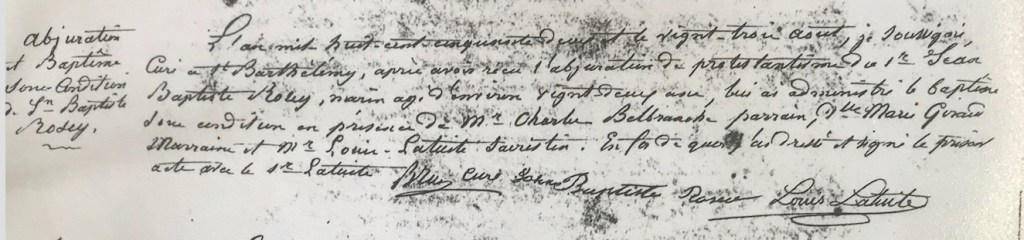 abjuration
et Baptême
sous Condition
de Jn Baptiste
Rosey.
L'an mil huit-cent-cinquante deux et le vingt-trois août, je soussigné,
Curé à St Barthélemy, après avoir reçu l'abjuration du protestantisme du Sr Jean
Baptiste Rosey, marin agé d'environ vingt-deux ans, lui ai administré le baptême
sous condition en présence de Mr Charles Belbranche parrain, Dlle Marie Giraud
Marraine et Mr Louis Latuite Sacristin. En foi de quoi j'ai dressé et signé le présent
acte avec le Sr Latuite
Curé Jean Baptiste Louis Latuite